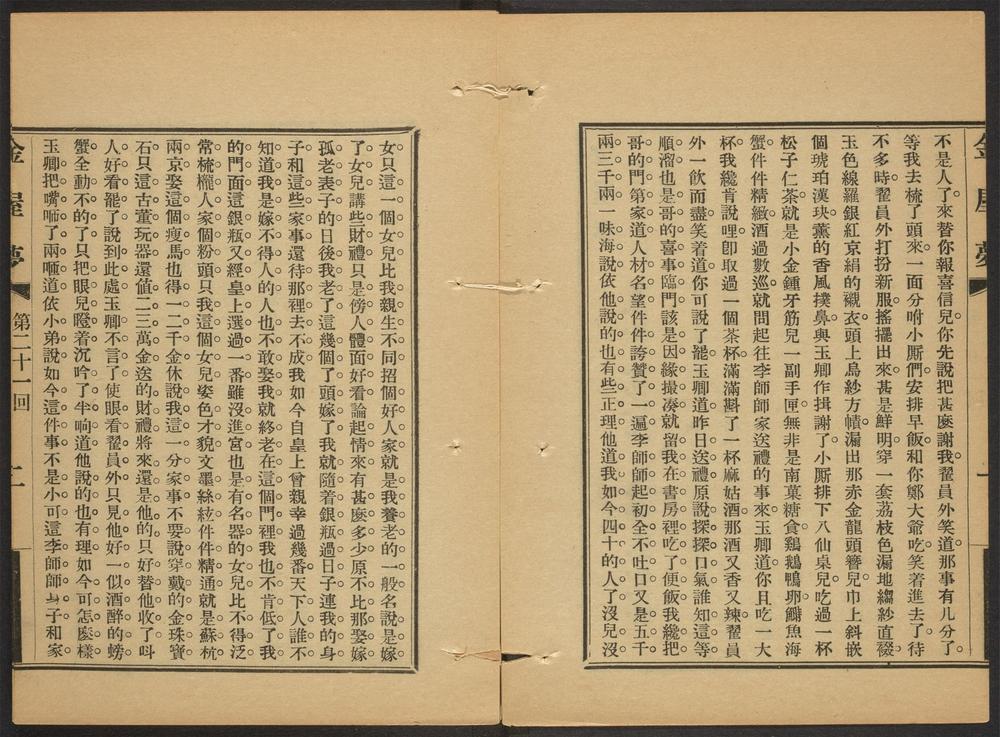 不是人了來替你報喜信兒你先說把甚麽謝我翟員外笑道那事有几分了
等我去梳了頭來一面分咐小厮們安排早飯和你鄭大爺吃笑着進去了待
不多時翟員外打扮新服搖擺出來甚是鮮明穿一套荔枝色漏地縐紗直裰
玉色線羅銀紅京絹的襯衣頭上烏紗方幘漏出那赤金龍頭簪兒巾上斜嵌
個琥珀漢玦薰的香風撲鼻與玉卿作揖謝了小厮排下八仙桌兒吃過一杯
松子仁茶就是小金鍾牙筋兒一副手匣無非是南菓糖食鷄鵝鴨卵鱘魚海
蟹件件精緻酒過數巡就問起往李師師家送禮的事來玉卿道你且吃一大
杯我纔肯說哩卽取過一個茶杯滿滿斟了一杯麻姑酒那酒又香又辣翟員
外一飲而盡笑着道你可說了罷玉卿道昨日送禮原說探探口氣誰知這等
順溜也是哥的喜事臨門該是因緣撮湊就留我在書房裡吃了便飯我纔把
哥的門第家道人材名望件件誇贊了一遍李師師起初全不吐口又是五千
兩三千兩一味海說依他說的也有些正理他道我如今四十的人了沒兒沒
女只這一個女兒比我親生不同招個好人家就是我養老的一般名說是嫁
了女兒講些財禮只是傍人體面好看論起情來有甚麽多少原不比那娶嫁
孤老表子的日後我老了這幾個了頭嫁了我就隨着銀瓶過日子連我的身
子和這些家事還待那裡去不成我如今自皇上曾親幸過幾番天下人誰不
知道我是嫁不得人的人也不敢娶我就終老在這個門裡我也不肯低了我
的門面這銀瓶又經皇上選過一番雖沒進宮也是有名器的女兒比不得泛
常梳櫳人家個粉頭只我這個女兒姿色才貌文墨絲絃件件精通就是蘇杭
兩京娶這個瘦馬也得一二千金休說我這一分家事不要說穿戴的金珠寶
石只這古董玩器還值二三萬金送的財禮將來還是他的只好替他收了呌
人好看罷了說到此處玉卿不言了使眼看翟員外只見他好一似酒醉的螃
蟹全動不的了只把眼兒瞪着沉吟了半晌道他說的也有理如今可怎麽樣
玉卿把嘴咂了兩咂道依小弟說如今這件事不是小可這李師師身子和家
金屋夢
第二十一回
二